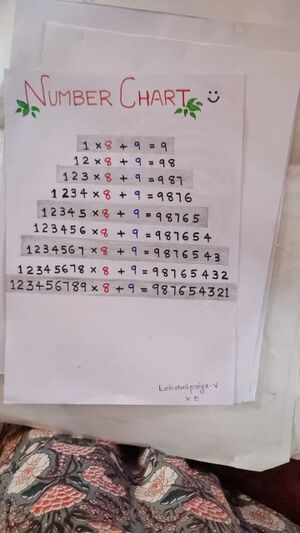 NUMBER CHART
1 × 8 + 9 = 9
12 × 8 + 9 = 98
123 × 8 + 9 = 987
1234 × 8 + 9 = 9876
12345 × 8 + 9 = 98765
123456 × 8 + 9 = 987654
1234567 × 8 + 9 = 9876543
12345678 × 8 + 9 = 98765432
123456789 × 8 + 9 = 987654321
X E